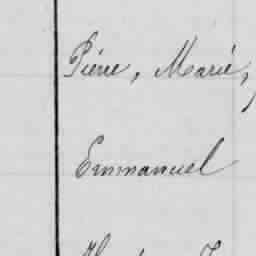 Pierre, Marie,
Emmanuel